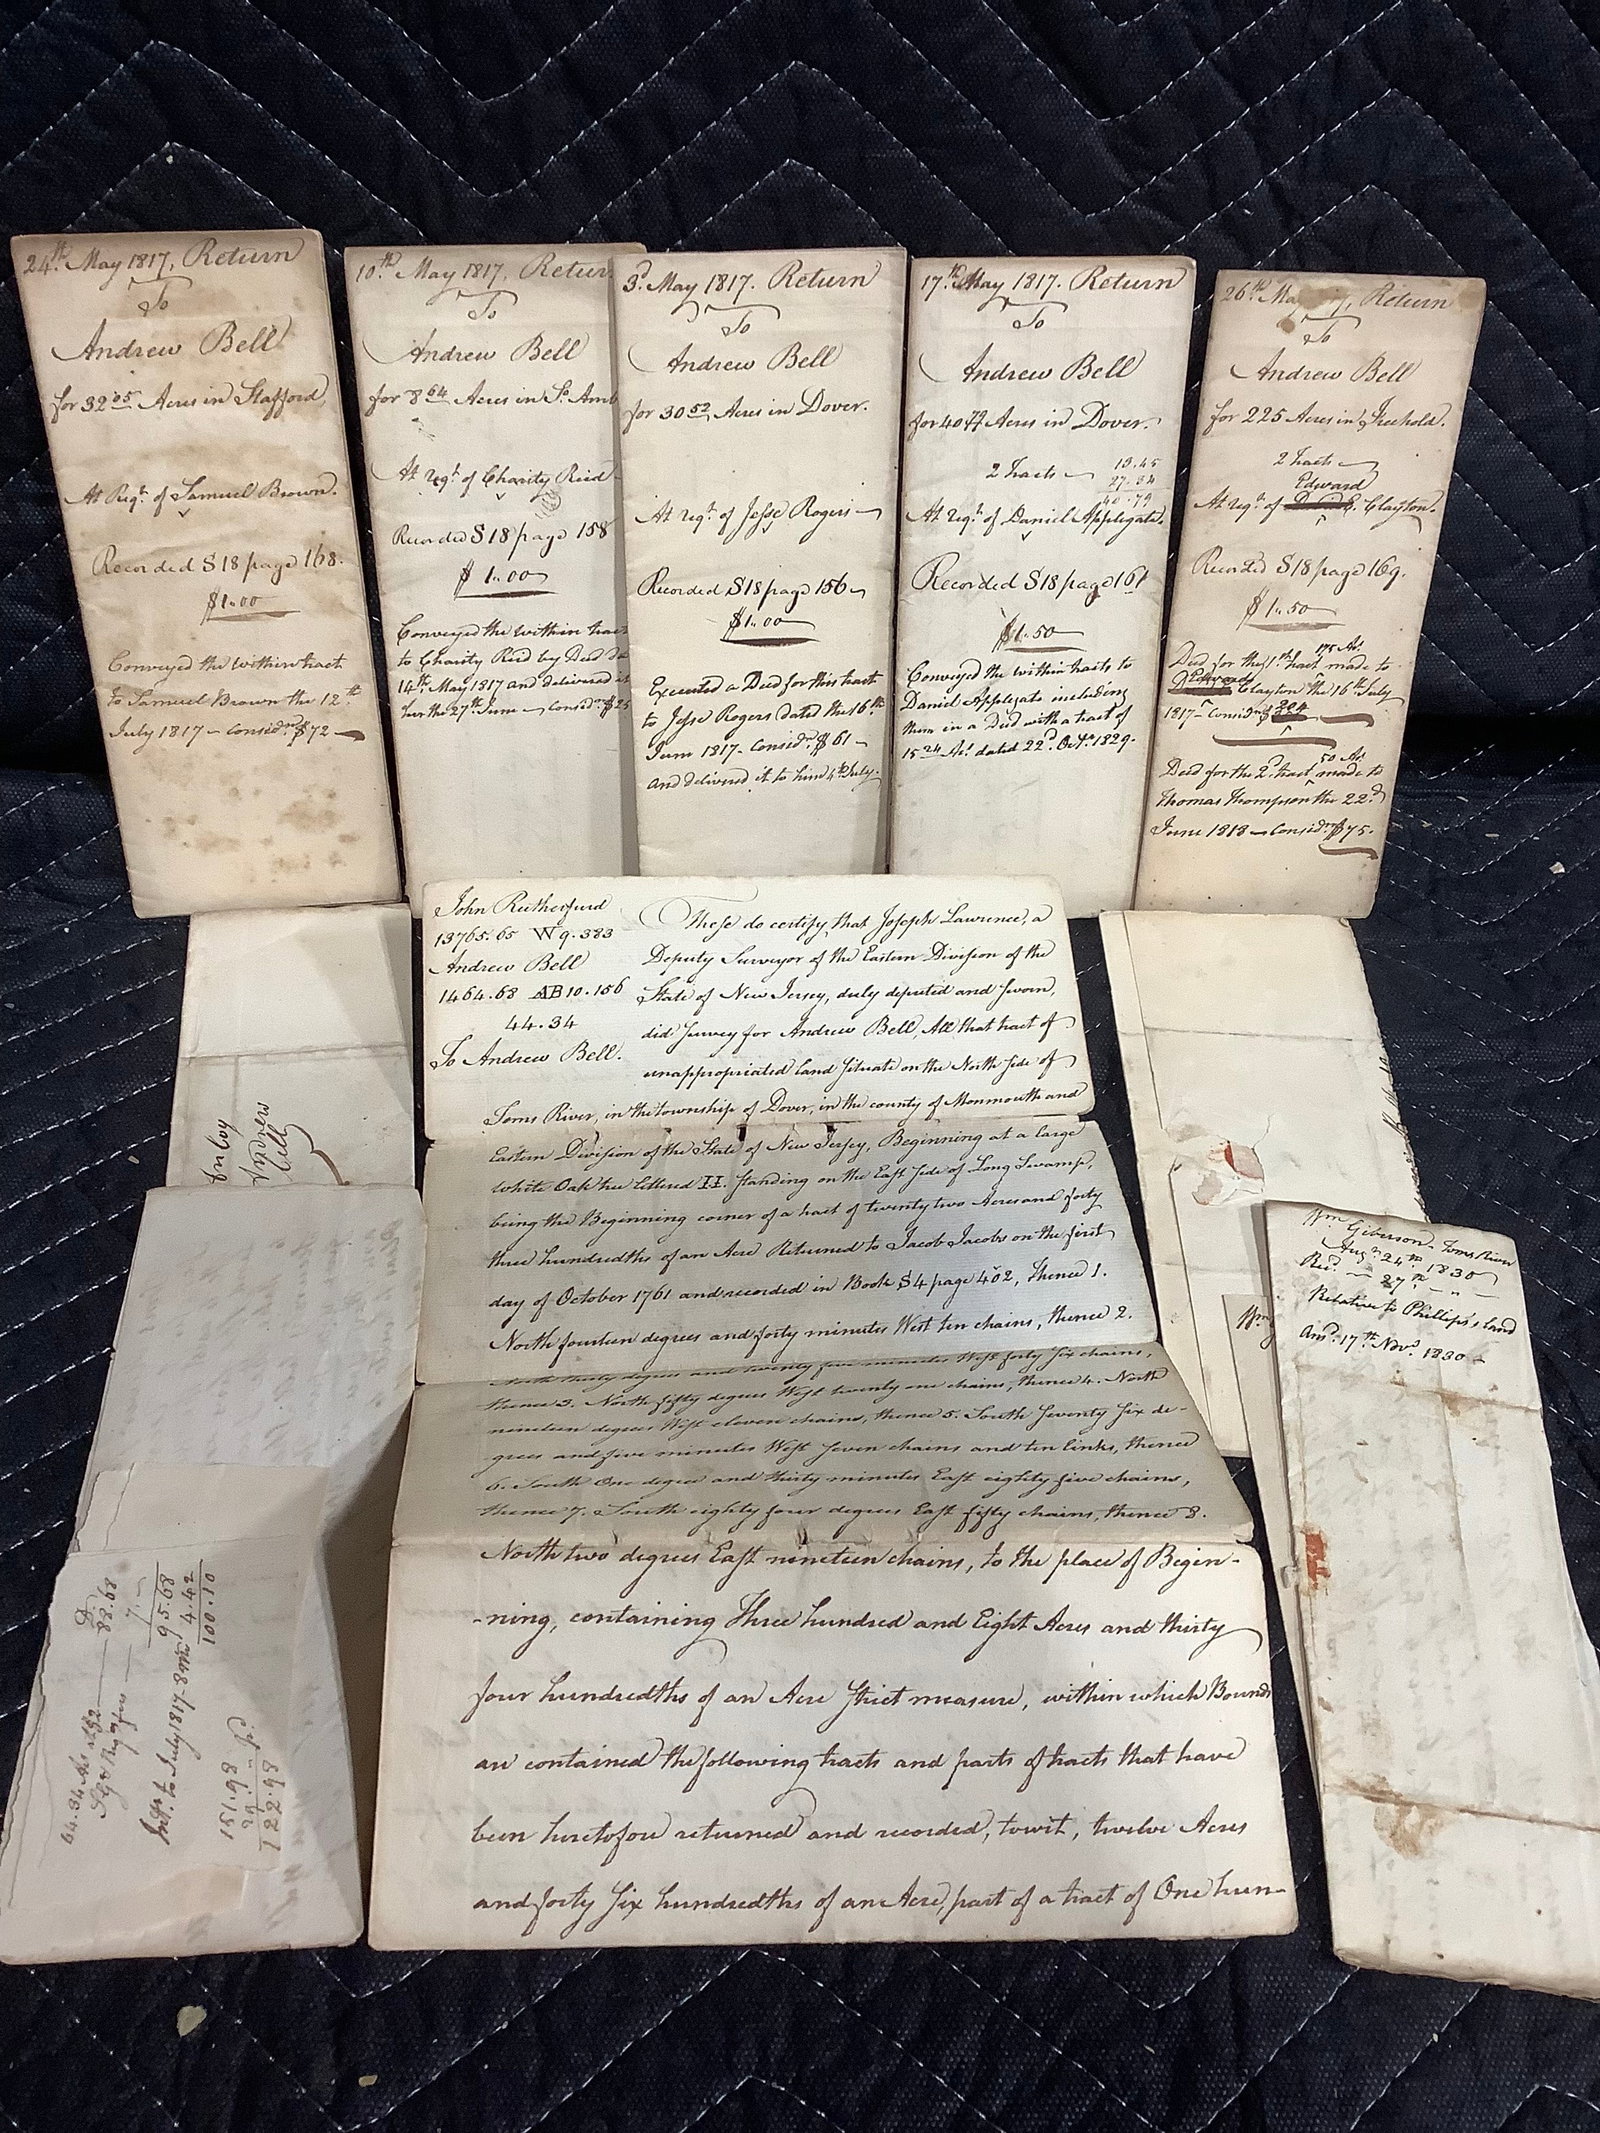 24th May 1817, Return
To
Andrew Bell
for 32 05 Acres in Stafford
At Reqt. of Samuel Brown.
Recorded S18 page 168.
$1..00
Conveyed the within tract
to Samuel Brown the 12th
July 1817 – considn. $72 –
10th May 1817, Return
To
Andrew Bell
for 8 64 Acres in So. Amb
At reqt. of Charity Reid
Recorded S18 page 158
$1..00
Conveyed the within tract
to Charity Reid by Deed da
14th May 1817 and delivered it
her the 27th June – considn. $25
3d. May 1817. Return
To
Andrew Bell
for 30 52 Acres in Dover.
At reqt. of Jesse Rogers –
Recorded S18 page 156 –
$1..00
Executed a Deed for this tract
to Jesse Rogers dated the 16th
June 1817 – considn. $61 –
and delivered it to him 4th July.
17th May 1817. Return
To
Andrew Bell
for 40 79 Acres in Dover.
2 tracts – 13.45
27.34
40.79
At reqt. of Daniel Applegate.
Recorded S18 page 161
$1..50
Conveyed the within tracts to
Daniel Applegate including
them in a Deed with a tract of
15 24 As. dated 22d. Octr. 1829.
26th May, Return
To
Andrew Bell
for 225 Acres in Freehold.
2 tracts –
Edward
At reqt. of Clayton.
Recorded S18 page 169.
$1..50
175 As.
Deed for the 1st tract made to
Edward Clayton the 16th July
1817 – considn. $
50 As.
Deed for the 2d. tract made to
Thomas Thompson the 22d
June 1818 – considn. $75.
John Rutherfurd
13765.65 W9.383
Andrew Bell
1464.68 AB10.156
44.34
To Andrew Bell.
These do certify that Joseph Lawrence, a
Deputy Surveyor of the Eastern Division of the
State of New Jersey, duly deputed and sworn,
did survey for Andrew Bell, All that tract of
unappropriated land situate on the North side of
Toms River, in the township of Dover, in the county of Monmouth and
Eastern Division of the State of New Jersey, Beginning at a large
white Oak tree lettered II. standing on the East side of Long Swamp,
being the Beginning corner of a tract of twenty two Acres and forty
three hundredths of an Acre Returned to Jacob Jacobs on the first
day of October 1761 and recorded in Book S4 page 402, thence 1.
North fourteen degrees and forty minutes West ten chains, thence 2.
North thirty degrees and twenty five minutes West forty six chains,
thence 3. North fifty degrees West twenty one chains, thence 4. North
nineteen degrees West eleven chains, thence 5. South seventy six de-
grees and five minutes West seven chains and ten links, thence
6. South One degree and thirty minutes East eighty five chains,
thence 7. South eighty four degrees East fifty chains, thence 8.
North two degrees East nineteen chains, to the place of Begin-
-ning, containing Three hundred and Eight Acres and thirty
four hundredths of an Acre strict measure, within which Bounds
are contained the following tracts and parts of tracts that have
been heretofore returned and recorded, towit, twelve Acres
and forty six hundredths of an Acre, part of a tract of One hun-
Andrew
Bell
Wm Giberson – Toms River
Augt. 24th 1830
Recd. – 27th – " –
Relative to Phillips's land
Ansd. 17th Novr. 1830 –
Wm
D
88.68
7.–
95.68
Intt. to July 1817 – 8 mo 4.42
100.10
151.98
122.98